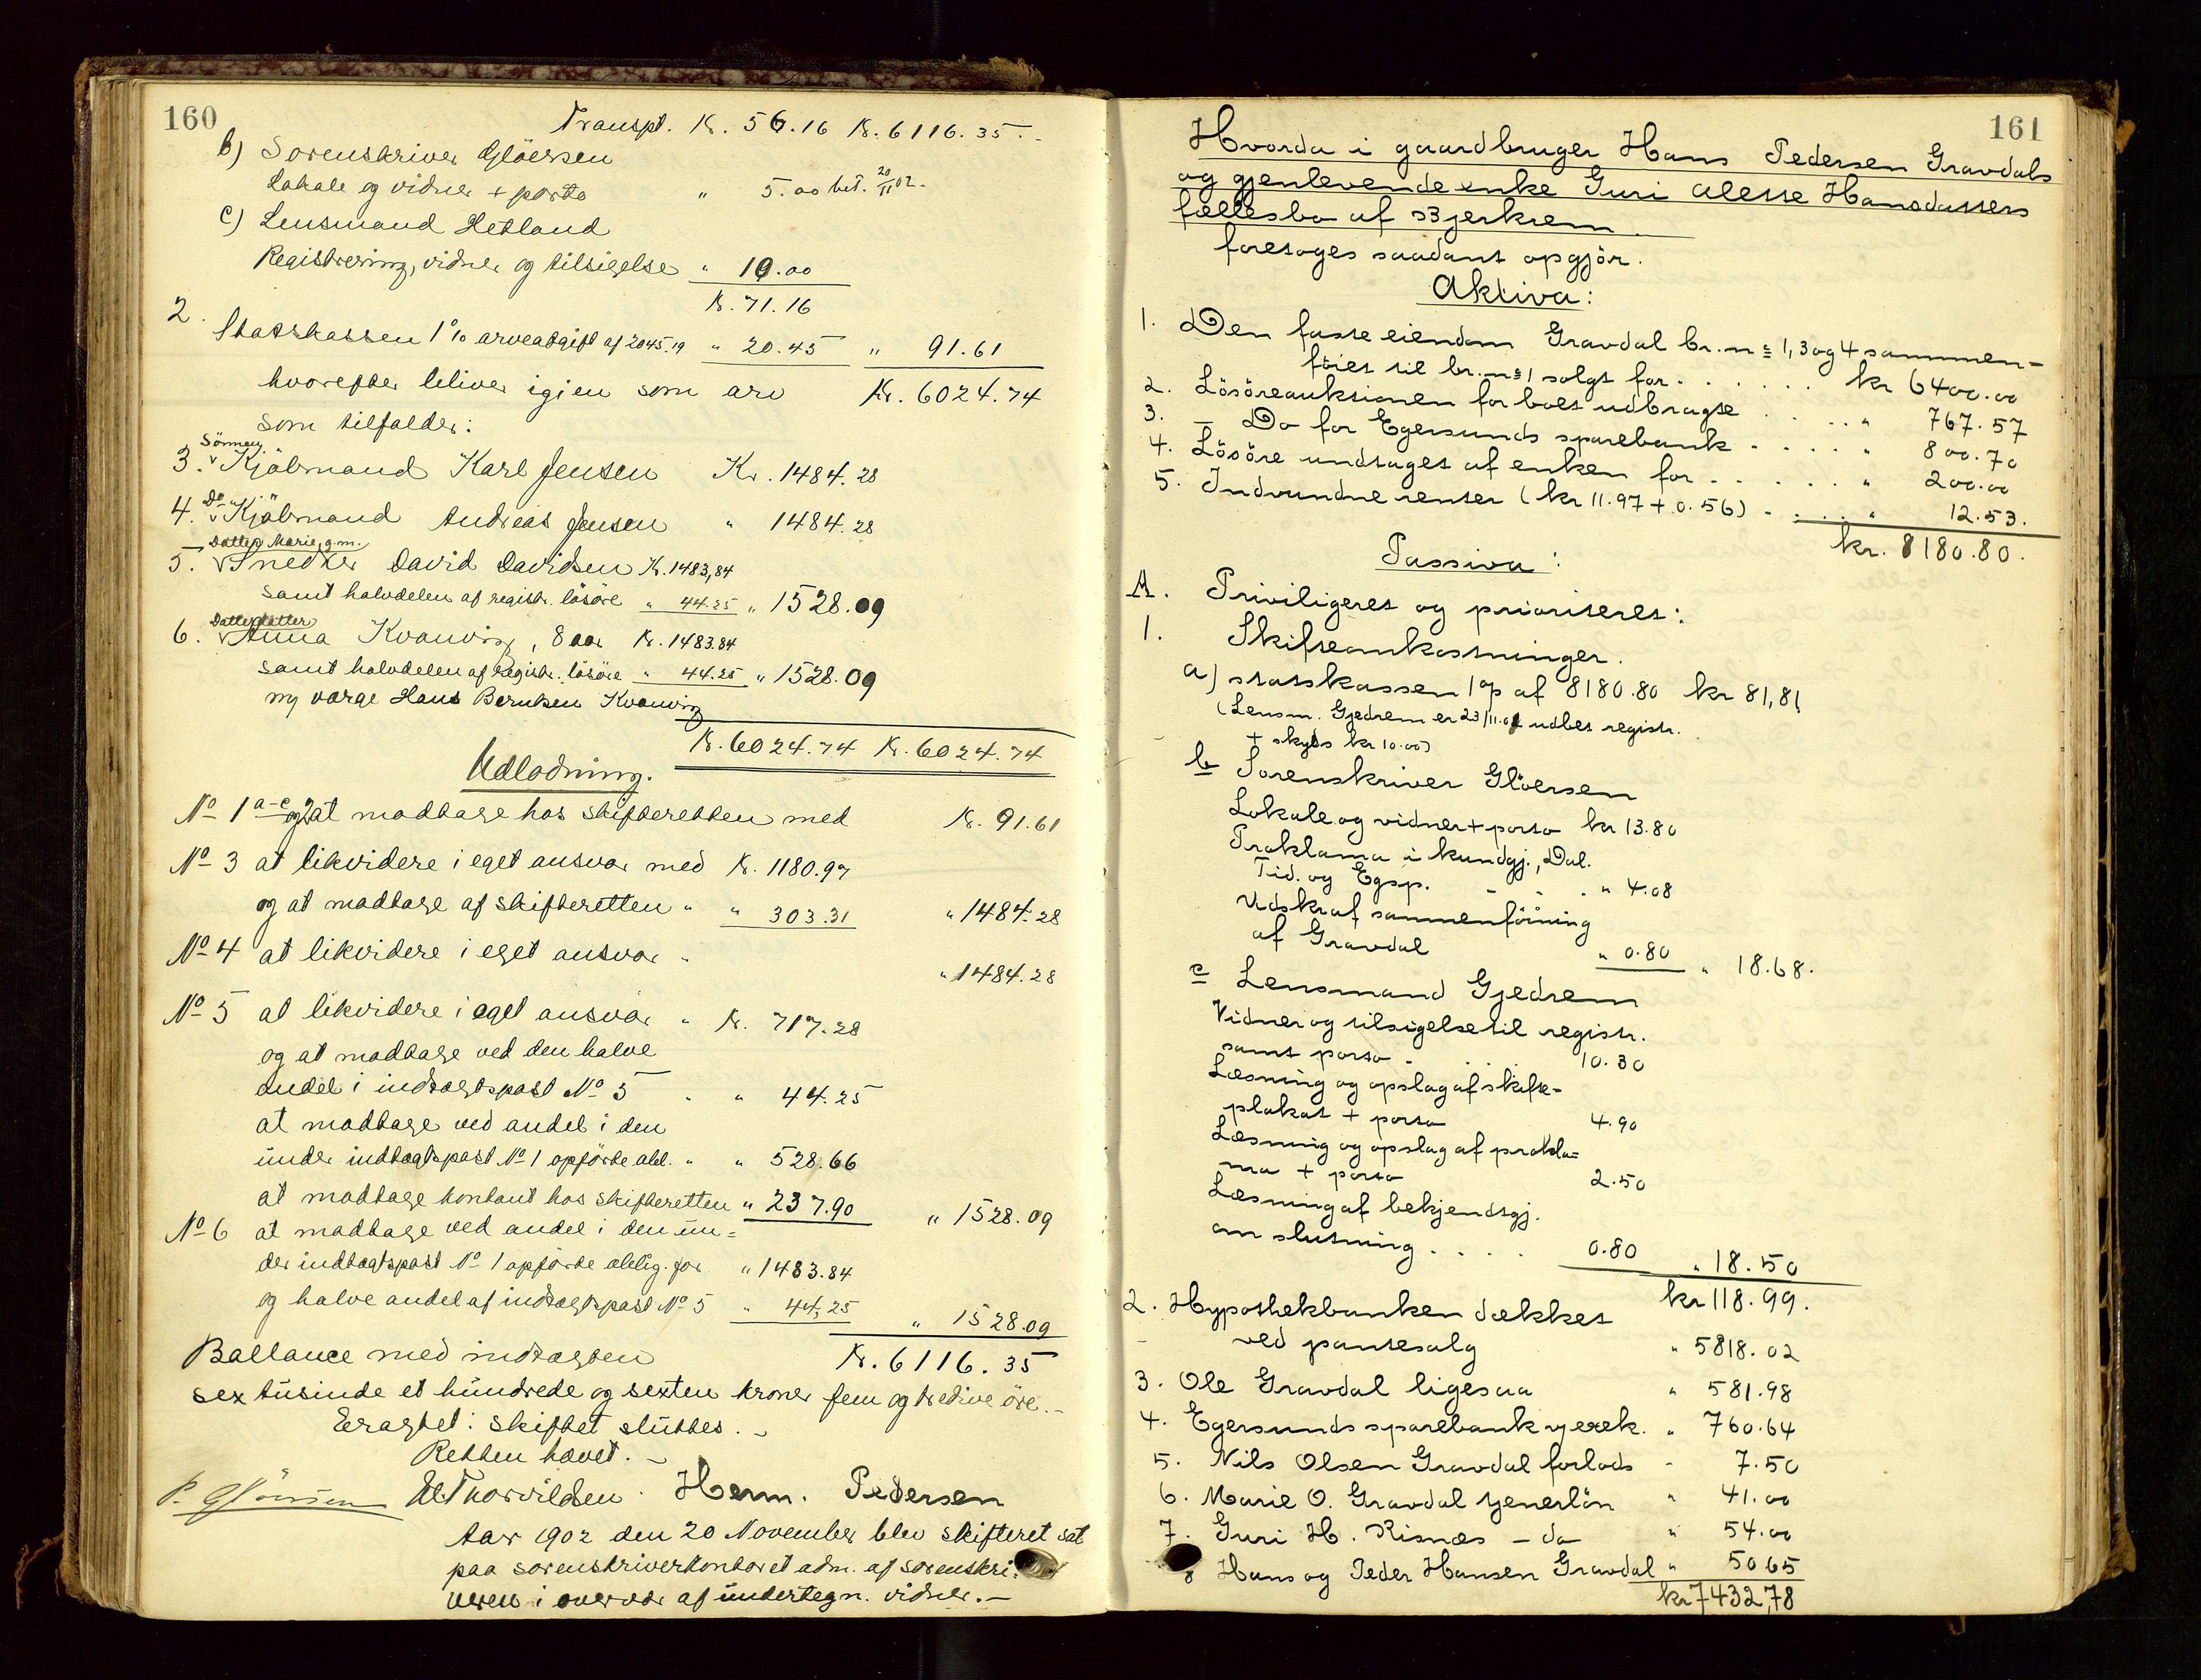 160
Transpt. Kr. 56.16 Kr. 6116.35.-
b) Sorenskriver Glöersen
Lokale og vidner + porto " 5.00 bet. 20/11 02.
c) Lensmand Hetland
Registrering, vidner og tilsigelse " 10.00
Kr. 71.16
2. Statskassen 1% arveafgift af 2045.19 " 20.45 " 91.61
hvorefter bliver igjen som arv Kr. 6024.74
som tilfalder:
Sönnen
3. v Kjöbmand Karl Jensen Kr. 1484.28
Do
4. v Kjöbmand Andreas Jensen " 1484.28
Datter Marie g.m.
5. v Snedker David Davidsen Kr. 1483,84
samt halvdelen af registr. lösöre " 44.25 " 1528.09
Datterdatter
6. v Anna Kvanvig, 8 aar Kr. 1483.84
samt halvdelen af registr. lösöre " 44.25 " 1528.09
ny værge Hans Berntsen Kvanvig
Kr. 6024.74 Kr. 6024.74
Udlodning.
No 1 a-c og 2 at modtage hos skifteretten med Kr. 91.61
No 3 at likvidere i eget ansvar med Kr. 1180.97
og at modtage af skifteretten " " 303.31 " 1484.28
No 4 at likvidere i eget ansvar "
" 1484.28
No 5 at likvidere i eget ansvar " Kr. 717.28
og at modtage ved den halve
andel i indtægtspost No 5 " " 44.25
at modtage ved andel i den
under indtægtspost No 1 opförte obl. " " 528.66
at modtage kontant hos skifteretten " 237.90 " 1528.09
No 6 at modtage ved andel i den un=
der indtægtspost No 1 opförte oblig. for " 1483.84
og halve andel af indtægtspost No 5 " 44,25 " 1528.09
Ballance med indtægten Kr. 6116.35
sex tusinde et hundrede og sexten kroner fem og tredive öre.-
Eragtet: skiftet sluttes.-
Retten hævet.-
P. Glöersen Herm. Pedersen
Aar 1902 den 20 November blev skifteret sat
paa sorenskriverkontoret adm. af sorenskri=
veren i overvær af undertegn. vidner.-
161
Hvorda i gaardbruger Hans Pedersen Gravdals
og gjenlevende enke Guri Alette Hansdatters
fællesbo af Bjerkrem.
foretoges saadant opgjör.
Aktiva:
1. Den faste eiendom Gravdal br. no 1, 3 og 4 sammen-
föiet til br. no 1 solgt for . . . . . . kr 6400.00
2. Lösöreauktionen for boet udbragte . . . . " 767.57
3. - Do for Egersunds sparebank . . . . . " 800.70
4. Lösöre undtaget af enken for . . . . . . " 200.00
5. Indvundne renter (kr 11.97 + 0.56) . . . . " 12.53.
kr. 8180.80.
Passiva:
A. Priviligeret og prioriteret:
1. Skifteomkostninger.
a) statskassen 1 op af 8180.80 kr 81,81
(Lensm. Gjedrem er 23/11.01 udbet registr.
+ skyds kr 10.00)
b Sorenskriver Glöersen
Lokale og vidner + porto kr 13.80
Proklama i kundgj., Dal.
Tid. og Egsp. - - . " 4.08
Udskr af sammenföining
af Gravdal " 0.80 " 18.68.
c Lensmand Gjedrem
Vidner og tilsigelse til registr.
samt porto . . . . 10.30
Læsning og opslag af skifte-
plakat + porto 4.90
Læsning og opslag af prokla=
ma + porto 2.50
Læsning af bekjendtgj.
om slutning . . . . 0.80 " 18.50
kr 118.99.
2. Hypothekbanken dækket
ved pantesalg " 5818.02
3. Ole Gravdal ligesaa " 581.98
4. Egersunds sparebank v. exek. " 760.64
5. Nils Olsen Gravdal forlods - 7.50
6. Marie O. Gravdal tjenerlön " 41.00
7. Guri H. Risnæs - do " 54.00
8 Hans og Peder Hansen Gravdal " 50 65
kr 7432,78